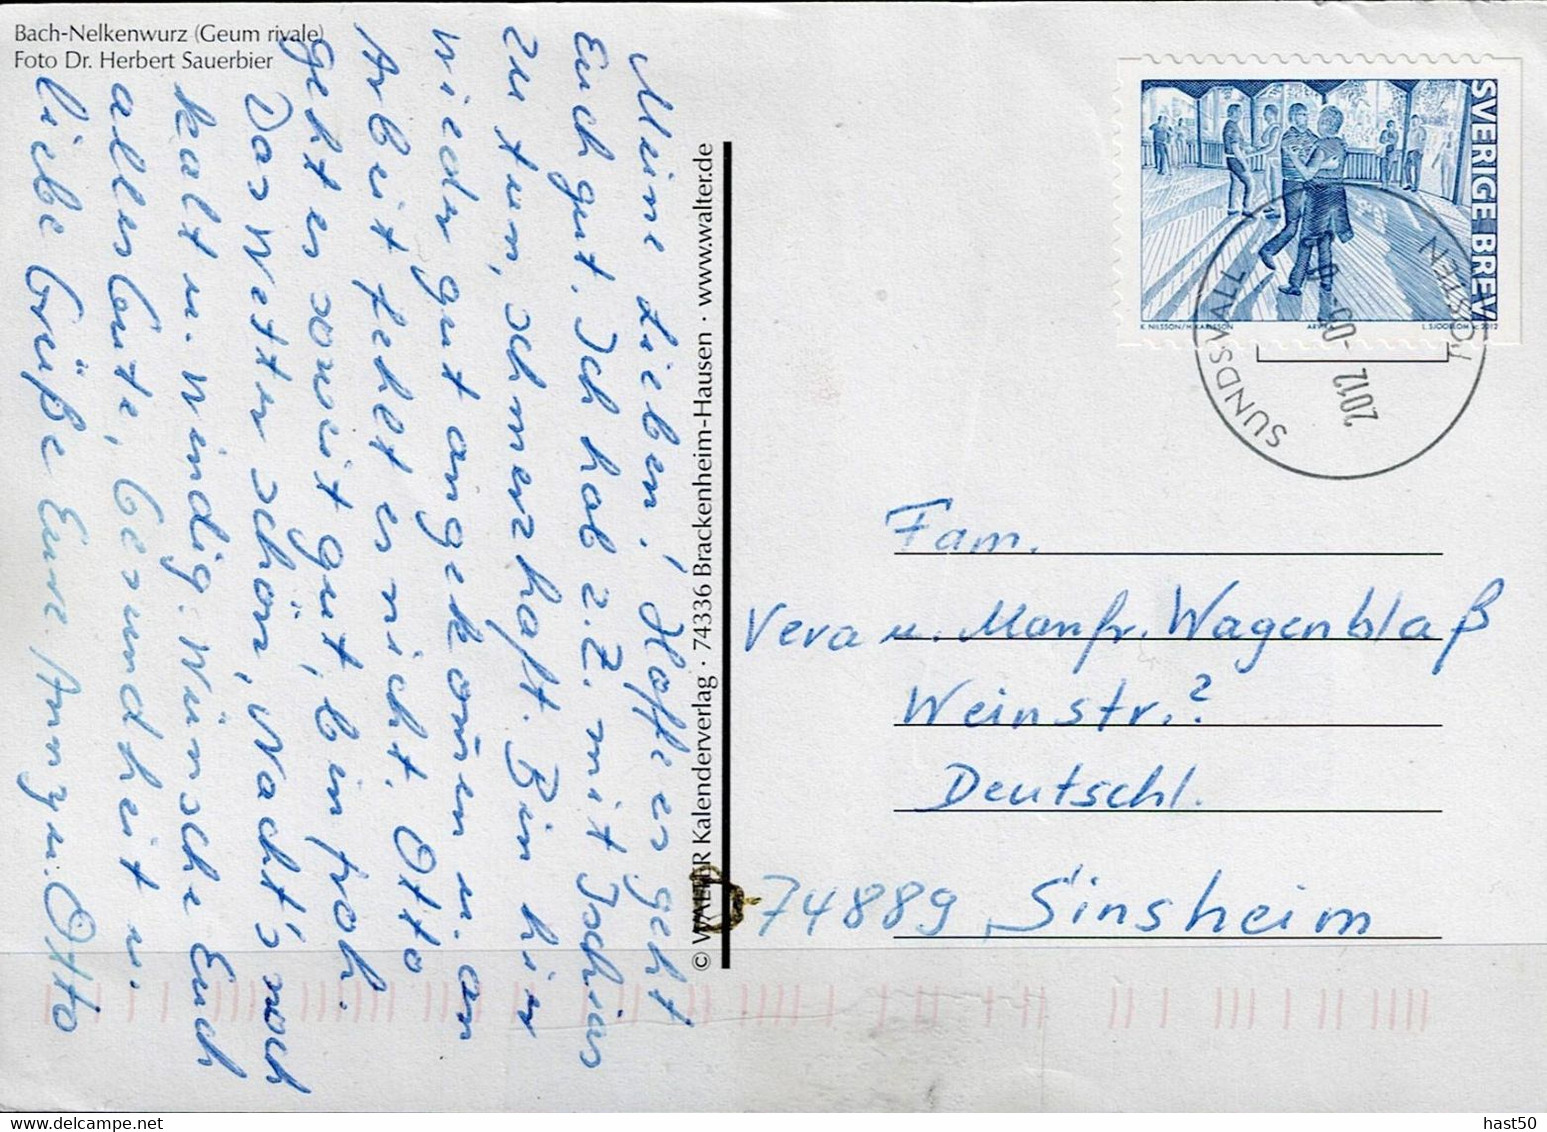 Bach-Nelkenwurz (Geum rivale)
Foto Dr. Herbert Sauerbier
Meine Lieben! Hoffe es geht
Euch gut. Ich hab z.Z. mit Ischias
zu tun, schmerzhaft. Bin hier
wieder gut angekom̄en u. an
Arbeit fehlt es nicht. Otto
geht es soweit gut, bin froh.
Das Wetter schön, Nacht's noch
kalt u. windig. Wünsche Euch
alles Gute, Gesundheit u.
liebe Grüße Eure Anny u. Otto
© WALTER Kalenderverlag · 74336 Brackenheim-Hausen · www.walter.de
SVERIGE BREV
K. NILSSON/H. KARLSSON
L. SJÖÖBLOM sc 2012
SUNDSVALL
POSTEN
2012
Fam.
Vera u. Manfr. Wagenblaß
Weinstr.?
Deutschl.
74889 Sinsheim
hast50